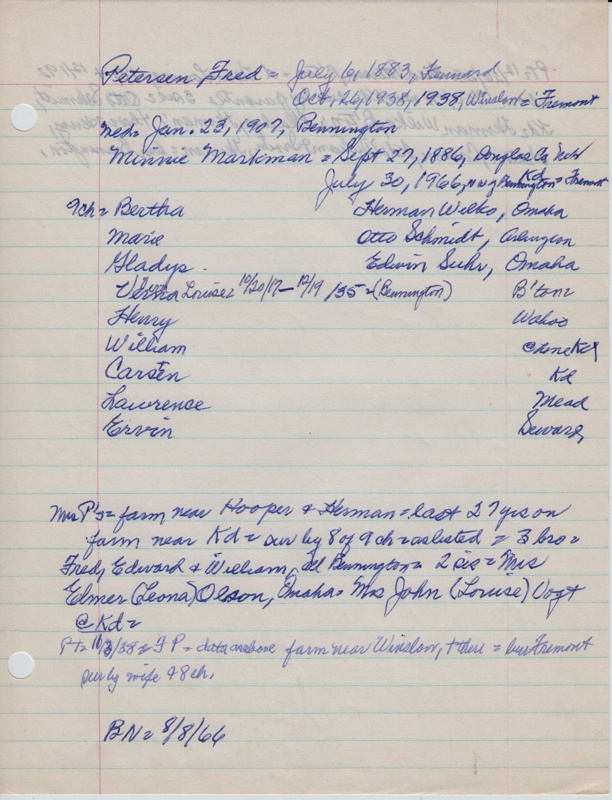 Petersen, Fred = July 6, 1883, Kennard
Oct. 26, 1938, 1938, Winslow = Fremont
neb = Jan. 23, 1907, Bennington
Minnie Markman = Sept 27, 1886, Douglas Co Neb
Kd
July 30, 1966, n w of Bennington = Fremont
9ch = Bertha Herman Wilko, Omaha
Marie Otto Schmidt, Arlington
Gladys Edwin Suhr, Omaha
Verna Louise = 10/20/17 - 12/19/35 = (Bennington) B'ton
Henry Wahoo
William @ home Kd
Carsten Kd
Lawrence Mead
Ervin Seward
Mrs P's = farm near Hooper & Herman = last 27 yrs on
farm near Kd = sur by 8 of 9 ch = as listed = 3 bro =
Fred, Edward & William, all Bennington = 2 sis = Mrs
Elmer (Leona) Olson, Omaha = Mrs John (Louise) Vogt
@ Kd =
Pt = /38 = F P = data as above farm near Winslow, + there = bur Fremont
sur by wife & 8 ch.
BN = 8/8/66